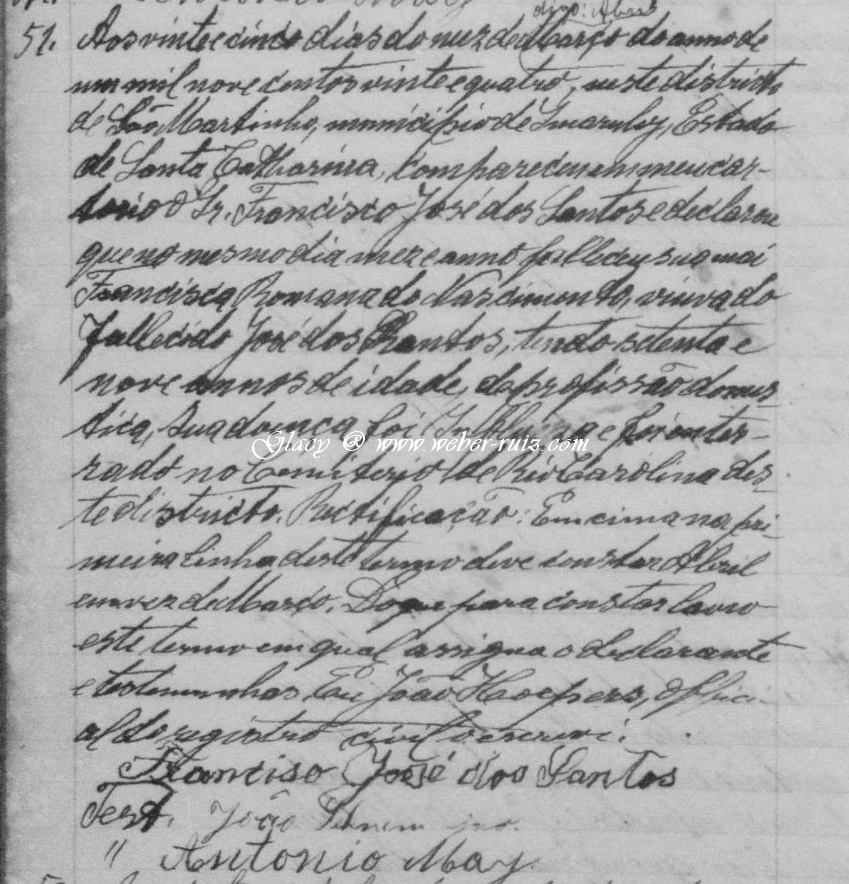 digo: Abril
51. Aos vinte e cinco dias do mez de Março do anno de
um mil nove centos vinte e quatro, neste districto
de São Martinho, municipio de Imaruhy, Estado
de Santa Catharina, compareceu em meu car-
torio o Sr. Francisco José dos Santos e declarou
que no mesmo dia mez e anno falleceu sua mai
Francisca Romana do Nascimento, viuva do
fallecido José dos Santos, tendo setenta e
nove annos de idade, de profissão domes-
tica, Sua doença foi e foi enter-
rado no Cemiterio de Rio Carolina des-
te districto. Rectificação: Em cima na pri-
meira linha deste termo deve constar Abril
em vez de Março. Do que para constar lavro
este termo em qual assigna o declarante
e testemunhas. Eu João Hoepers, offici-
al do registro civil o escrevi.
Franciso José dos Santos
Test. João
" Antonio May.
Glacy @ www.weber-ruiz.com